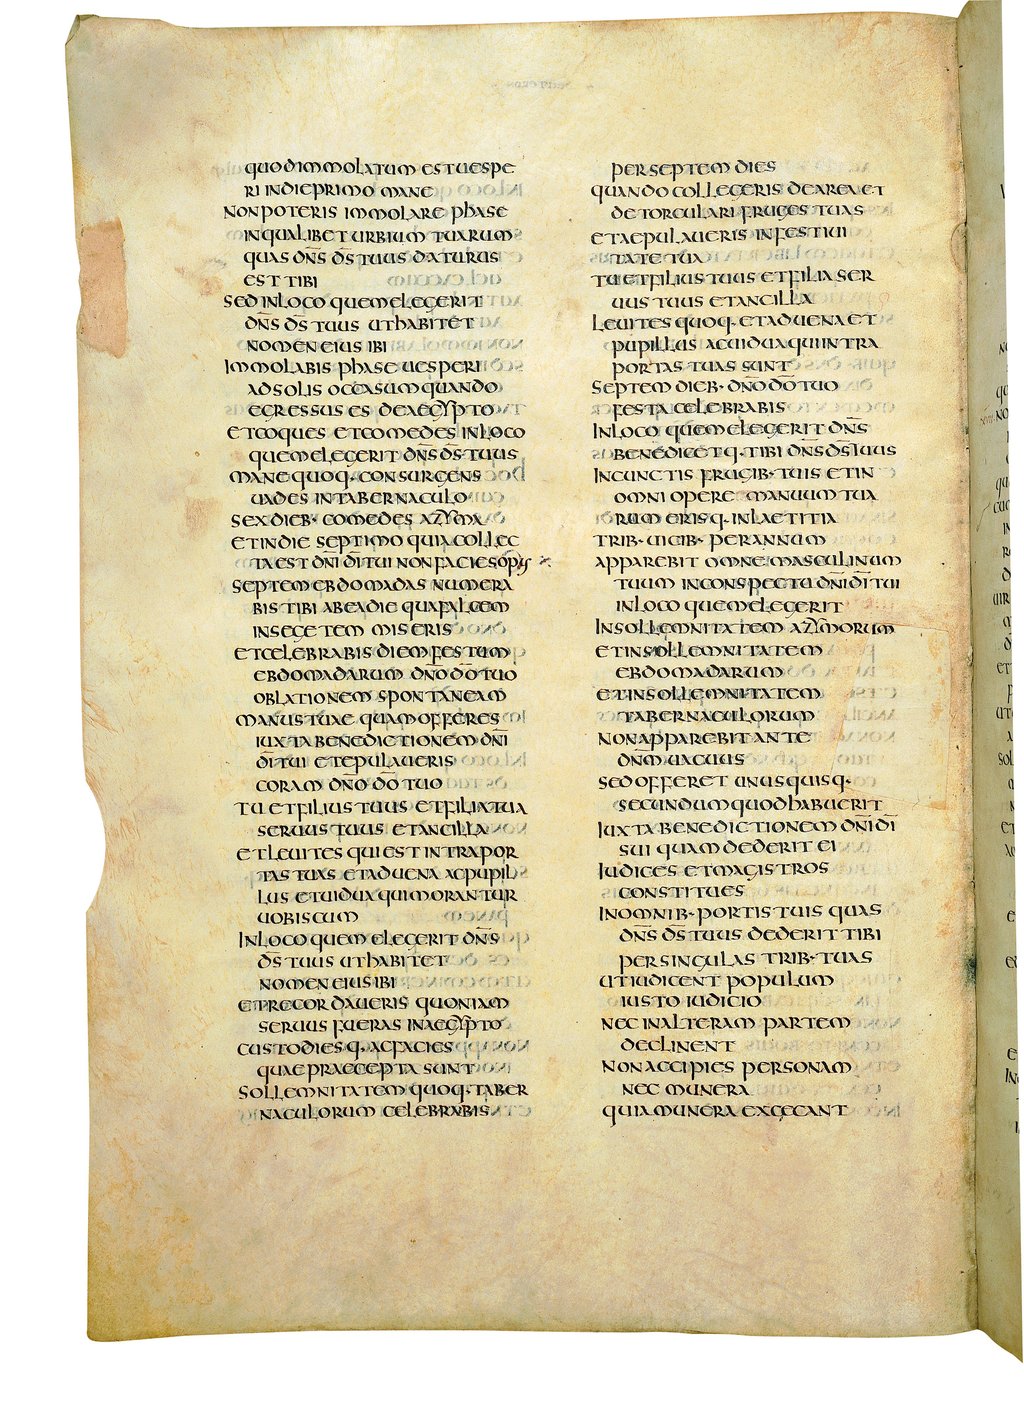 QUOD IMMOLATUM EST UESPE
RI IN DIE PRIMO MANE
NON POTERIS IMMOLARE PHASE
IN QUALIBET URBIUM TUARUM
QUAS DN̄S DS̄ TUUS DATURUS
EST TIBI
SED IN LOCO QUEM ELEGERIT
DN̄S DS̄ TUUS UT HABITET
NOMEN EIUS IBI
IMMOLABIS PHASE UESPERI
AD SOLIS OCCASUM QUANDO
EGRESSUS ES DE AEGYPTO
ET COQUES ET COMEDES IN LOCO
QUEM ELEGERIT DN̄S DS̄ TUUS
MANEQUOQ· CONSURGENS
UADES IN TABERNACULO
SEX DIEB· COMEDES AZYMA
ET IN DIE SEPTIMO QUIA COLLEC
TA EST DN̄I DĪ TUI NON FACIES OPUS
SEPTEM EBDOMADAS NUMERA
BIS TIBI AB EA DIE QUA FALCEM
IN SEGETEM MISERIS
ET CELEBRABIS DIEM FESTUM
EBDOMADARUM DN̄O DŌ TUO
OBLATIONEM SPONTANEAM
MANUS TUAE QUAM OFFERES
IUXTA BENEDICTIONEM DN̄I
DĪ TUI ET EPULAUERIS
CORAM DN̄O DŌ TUO
TU ET FILIUS TUUS ET FILIA TUA
SERUUS TUUS ET ANCILLA
ET LEUITES QUI EST INTRA POR
TAS TUAS ET ADUENA AC PUPIL
LUS ET UIDUA QUI MORANTUR
UOBISCUM
IN LOCO QUEM ELEGERIT DN̄S
DS̄ TUUS UT HABITET
NOMEN EIUS IBI
ET RECORDAUERIS QUONIAM
SERUUS FUERAS IN AEGYPTO
CUSTODIESQ· AC FACIES
QUAE PRAECEPTA SUNT
SOLLEMNITATEM QUOQ· TABER
NACULORUM CELEBRABIS
PER SEPTEM DIES
QUANDO COLLEGERIS DE AREA ET
DE TORCULARI FRUGES TUAS
ET AEPULAUERIS IN FESTIUI
TATE TUA
TU ET FILIUS TUUS ET FILIA SER
UUS TUUS ET ANCILLA
LEUITES QUOQ· ET ADUENA ET
PUPILLUS AC UIDUA QUI INTRA
PORTAS TUAS SUNT
SEPTEM DIEB· DN̄O DŌ TUO
FESTA CELEBRABIS
IN LOCO QUEM ELEGERIT DN̄S
BENEDICETQ· TIBI DN̄S DS̄ TUUS
IN CUNCTIS FRUGIB· TUIS ET IN
OMNI OPERE MANUUM TUA
RUM ERISQ· IN LAETITIA
TRIB· UICIB· PER ANNUM
APPAREBIT OMNE MASCULINUM
TUUM IN CONSPECTU DN̄I DĪ TUI
IN LOCO QUEM ELEGERIT
IN SOLLEMNITATEM AZYMORUM
ET IN SOLLEMNITATEM
EBDOMADARUM
ET IN SOLLEMNITATEM
TABERNACULORUM
NON APPAREBIT ANTE
DN̄M UACUUS
SED OFFERET UNUSQUISQ·
SECUNDUM QUOD HABUERIT
IUXTA BENEDICTIONEM DN̄I DĪ
SUI QUAM DEDERIT EI
IUDICES ET MAGISTROS
CONSTITUES
IN OMNIB· PORTIS TUIS QUAS
DN̄S DS̄ TUUS DEDERIT TIBI
PER SINGULAS TRIB· TUAS
UT IUDICENT POPULUM
IUSTO IUDICIO
NEC IN ALTERAM PARTEM
DECLINENT
NON ACCIPIES PERSONAM
NEC MUNERA
QUIA MUNERA EXCECANT